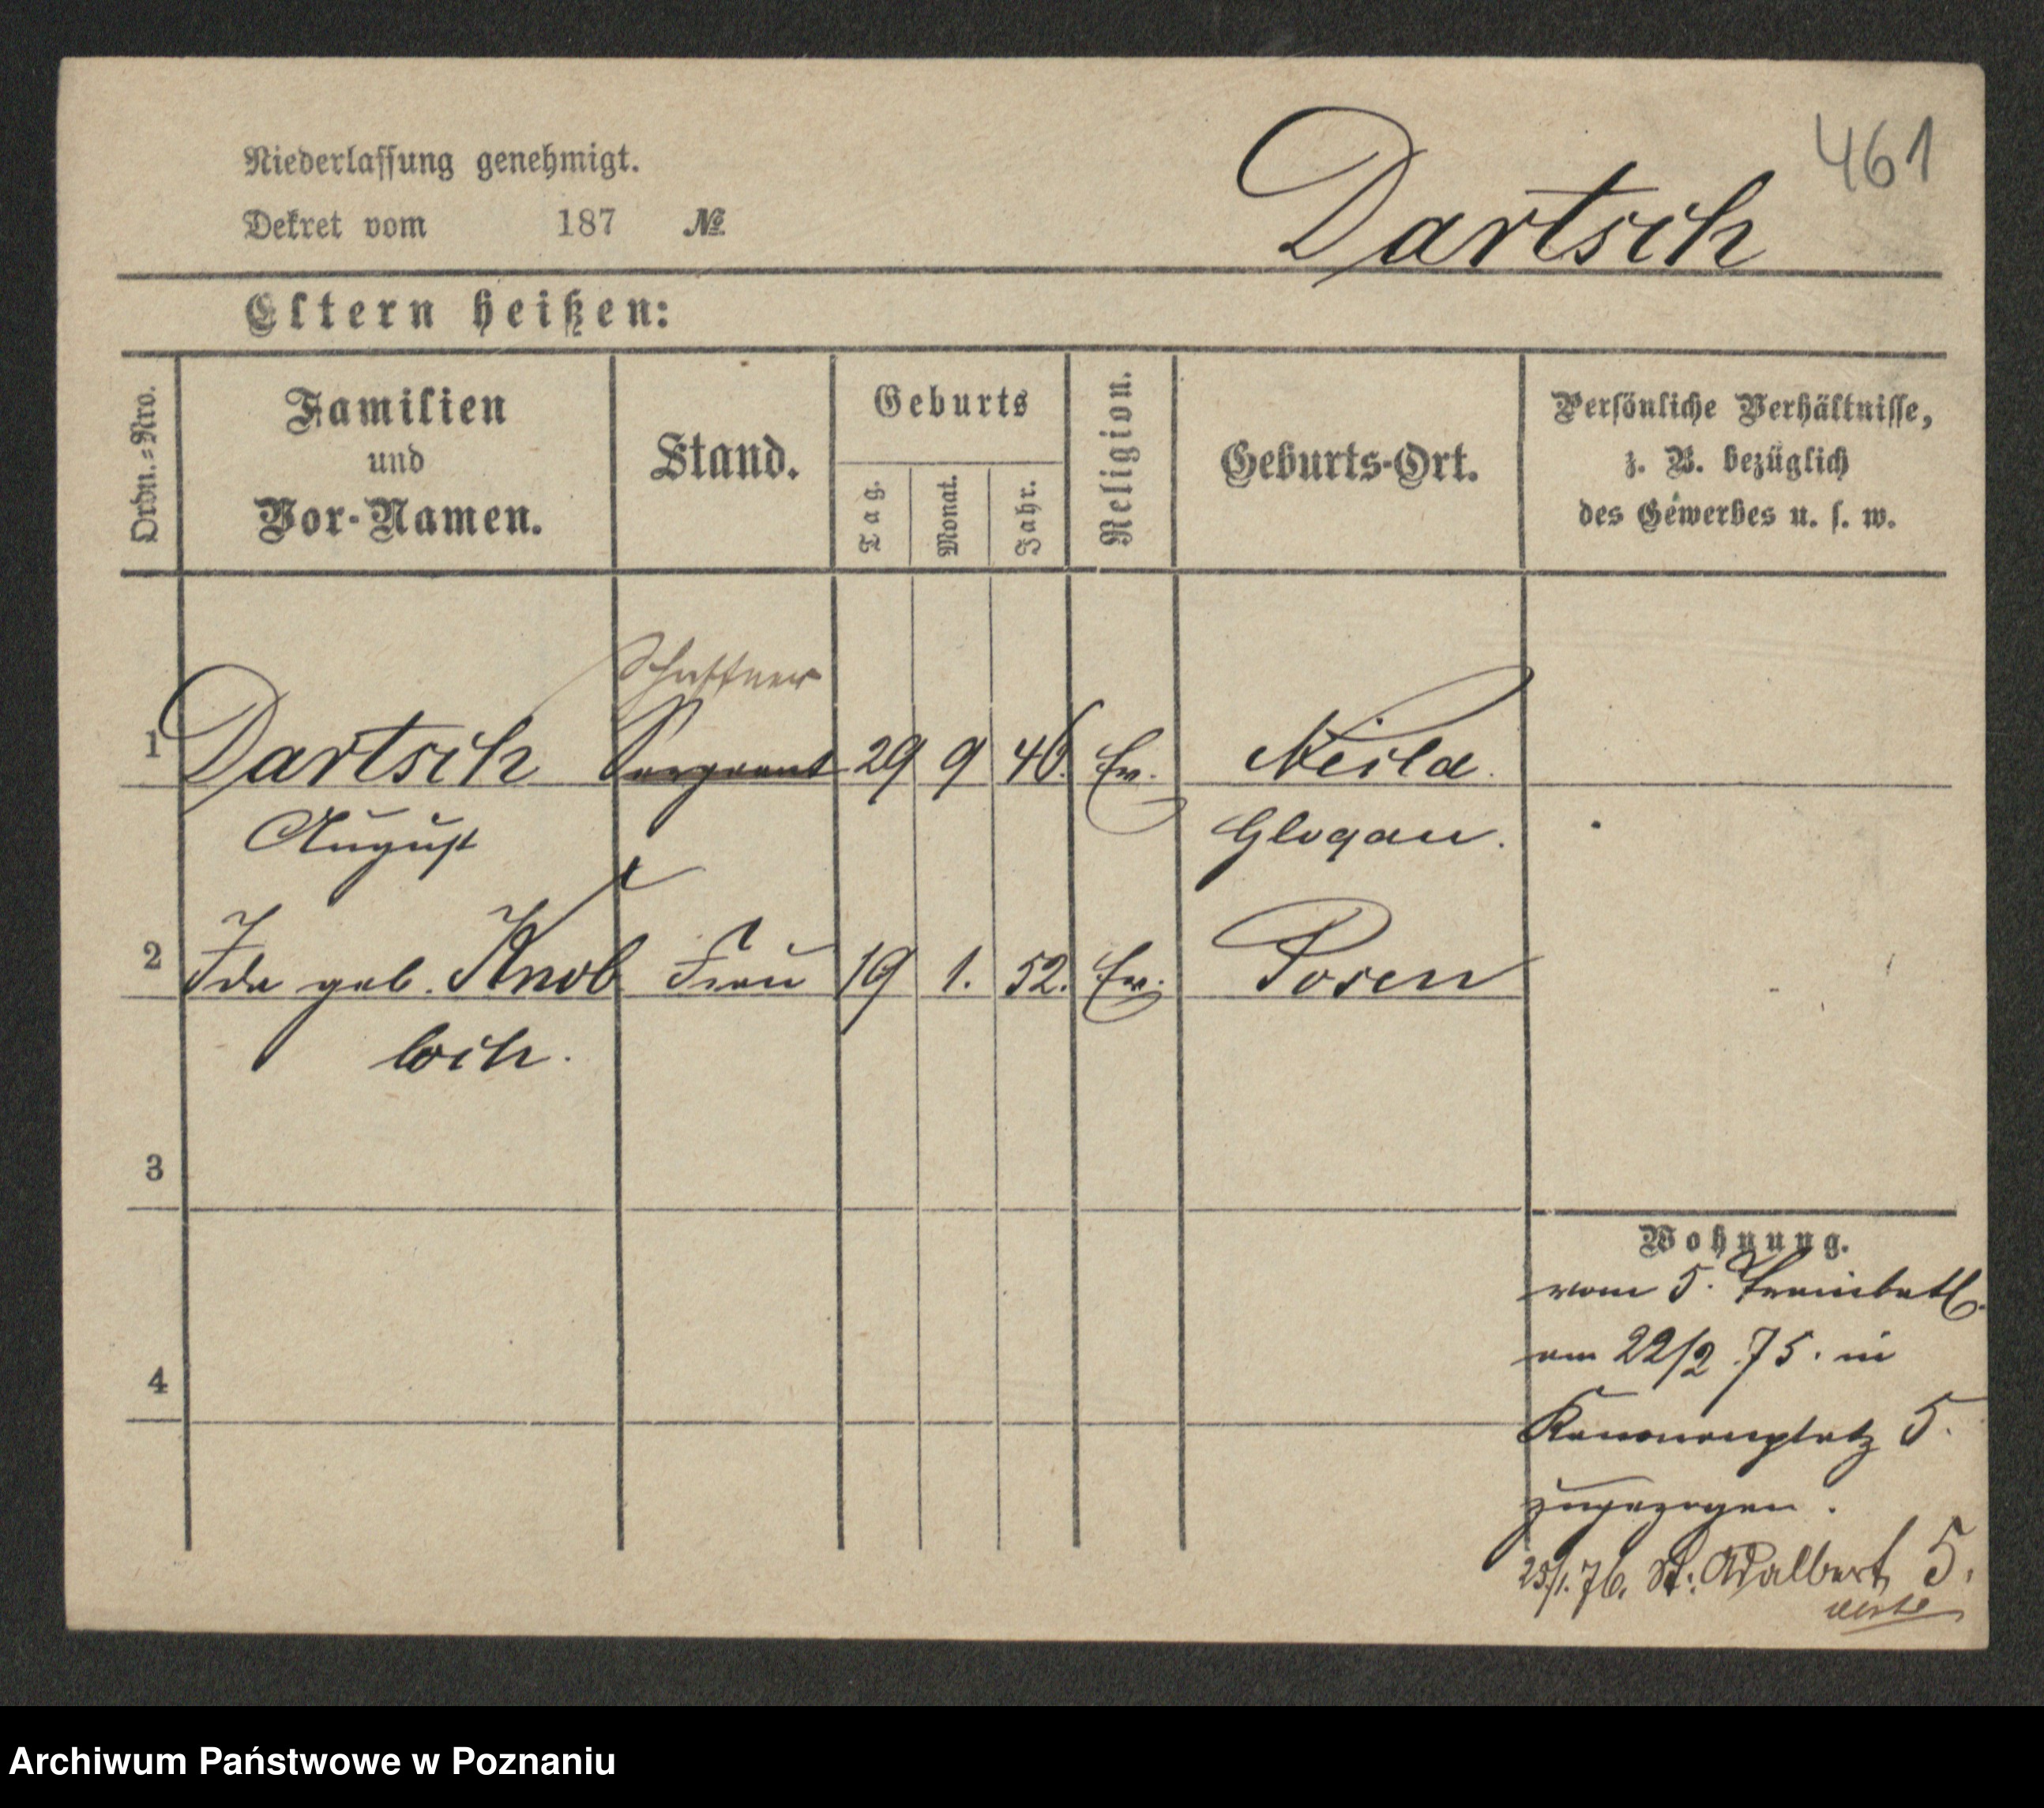 461
Niederlassung genehmigt.
Dekret vom 187 №
Dartsch
Eltern heißen:
Ordn.=Nro.
Familien
und
Vor-Namen.
Stand.
Geburts
Tag.
Monat.
Jahr.
Religion.
Geburts-Ort.
Persönliche Verhältnisse,
z. B. bezüglich
des Gewerbes u. s. w.
Schaffner
1 Dartsch Sergeant 29 9 46. Ev.
August Glogau.
2 Ida geb. Knob Frau 19 1. 52. Ev. Posen
loch.
3
4
Wohnung.
vom 5. Trainbatl.
am 22/2. 75. in
Kanonenplatz 5.
zugezogen.
25/1. 76. St: Adalbert 5.
verte
Archiwum Państwowe w Poznaniu